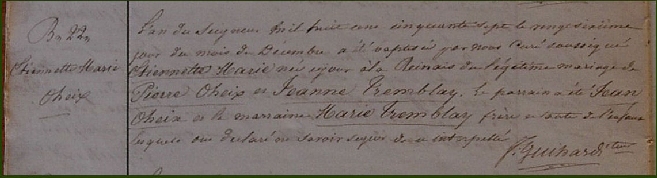 Bn 22
Etiennette Marie
Oheix
L'an du Seigneur mil huit cent cinquante sept le vingt sixième
jour du mois de Décembre a été baptisée par nous Curé soussigné
Etiennette Marie née ce jour à la Reinais du légitime mariage de
Pierre Oheix et Jeanne Tremblay, le parrain a été Jean
Oheix et la marraine Marie Tremblay frère et tante de l'enfant
lesquels ont déclaré ne savoir signer de ce interpellés
J. Guihard